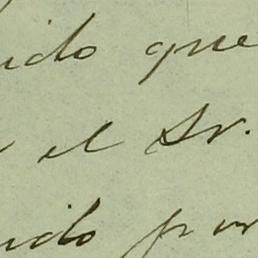 ido que
el Sr.
ido por